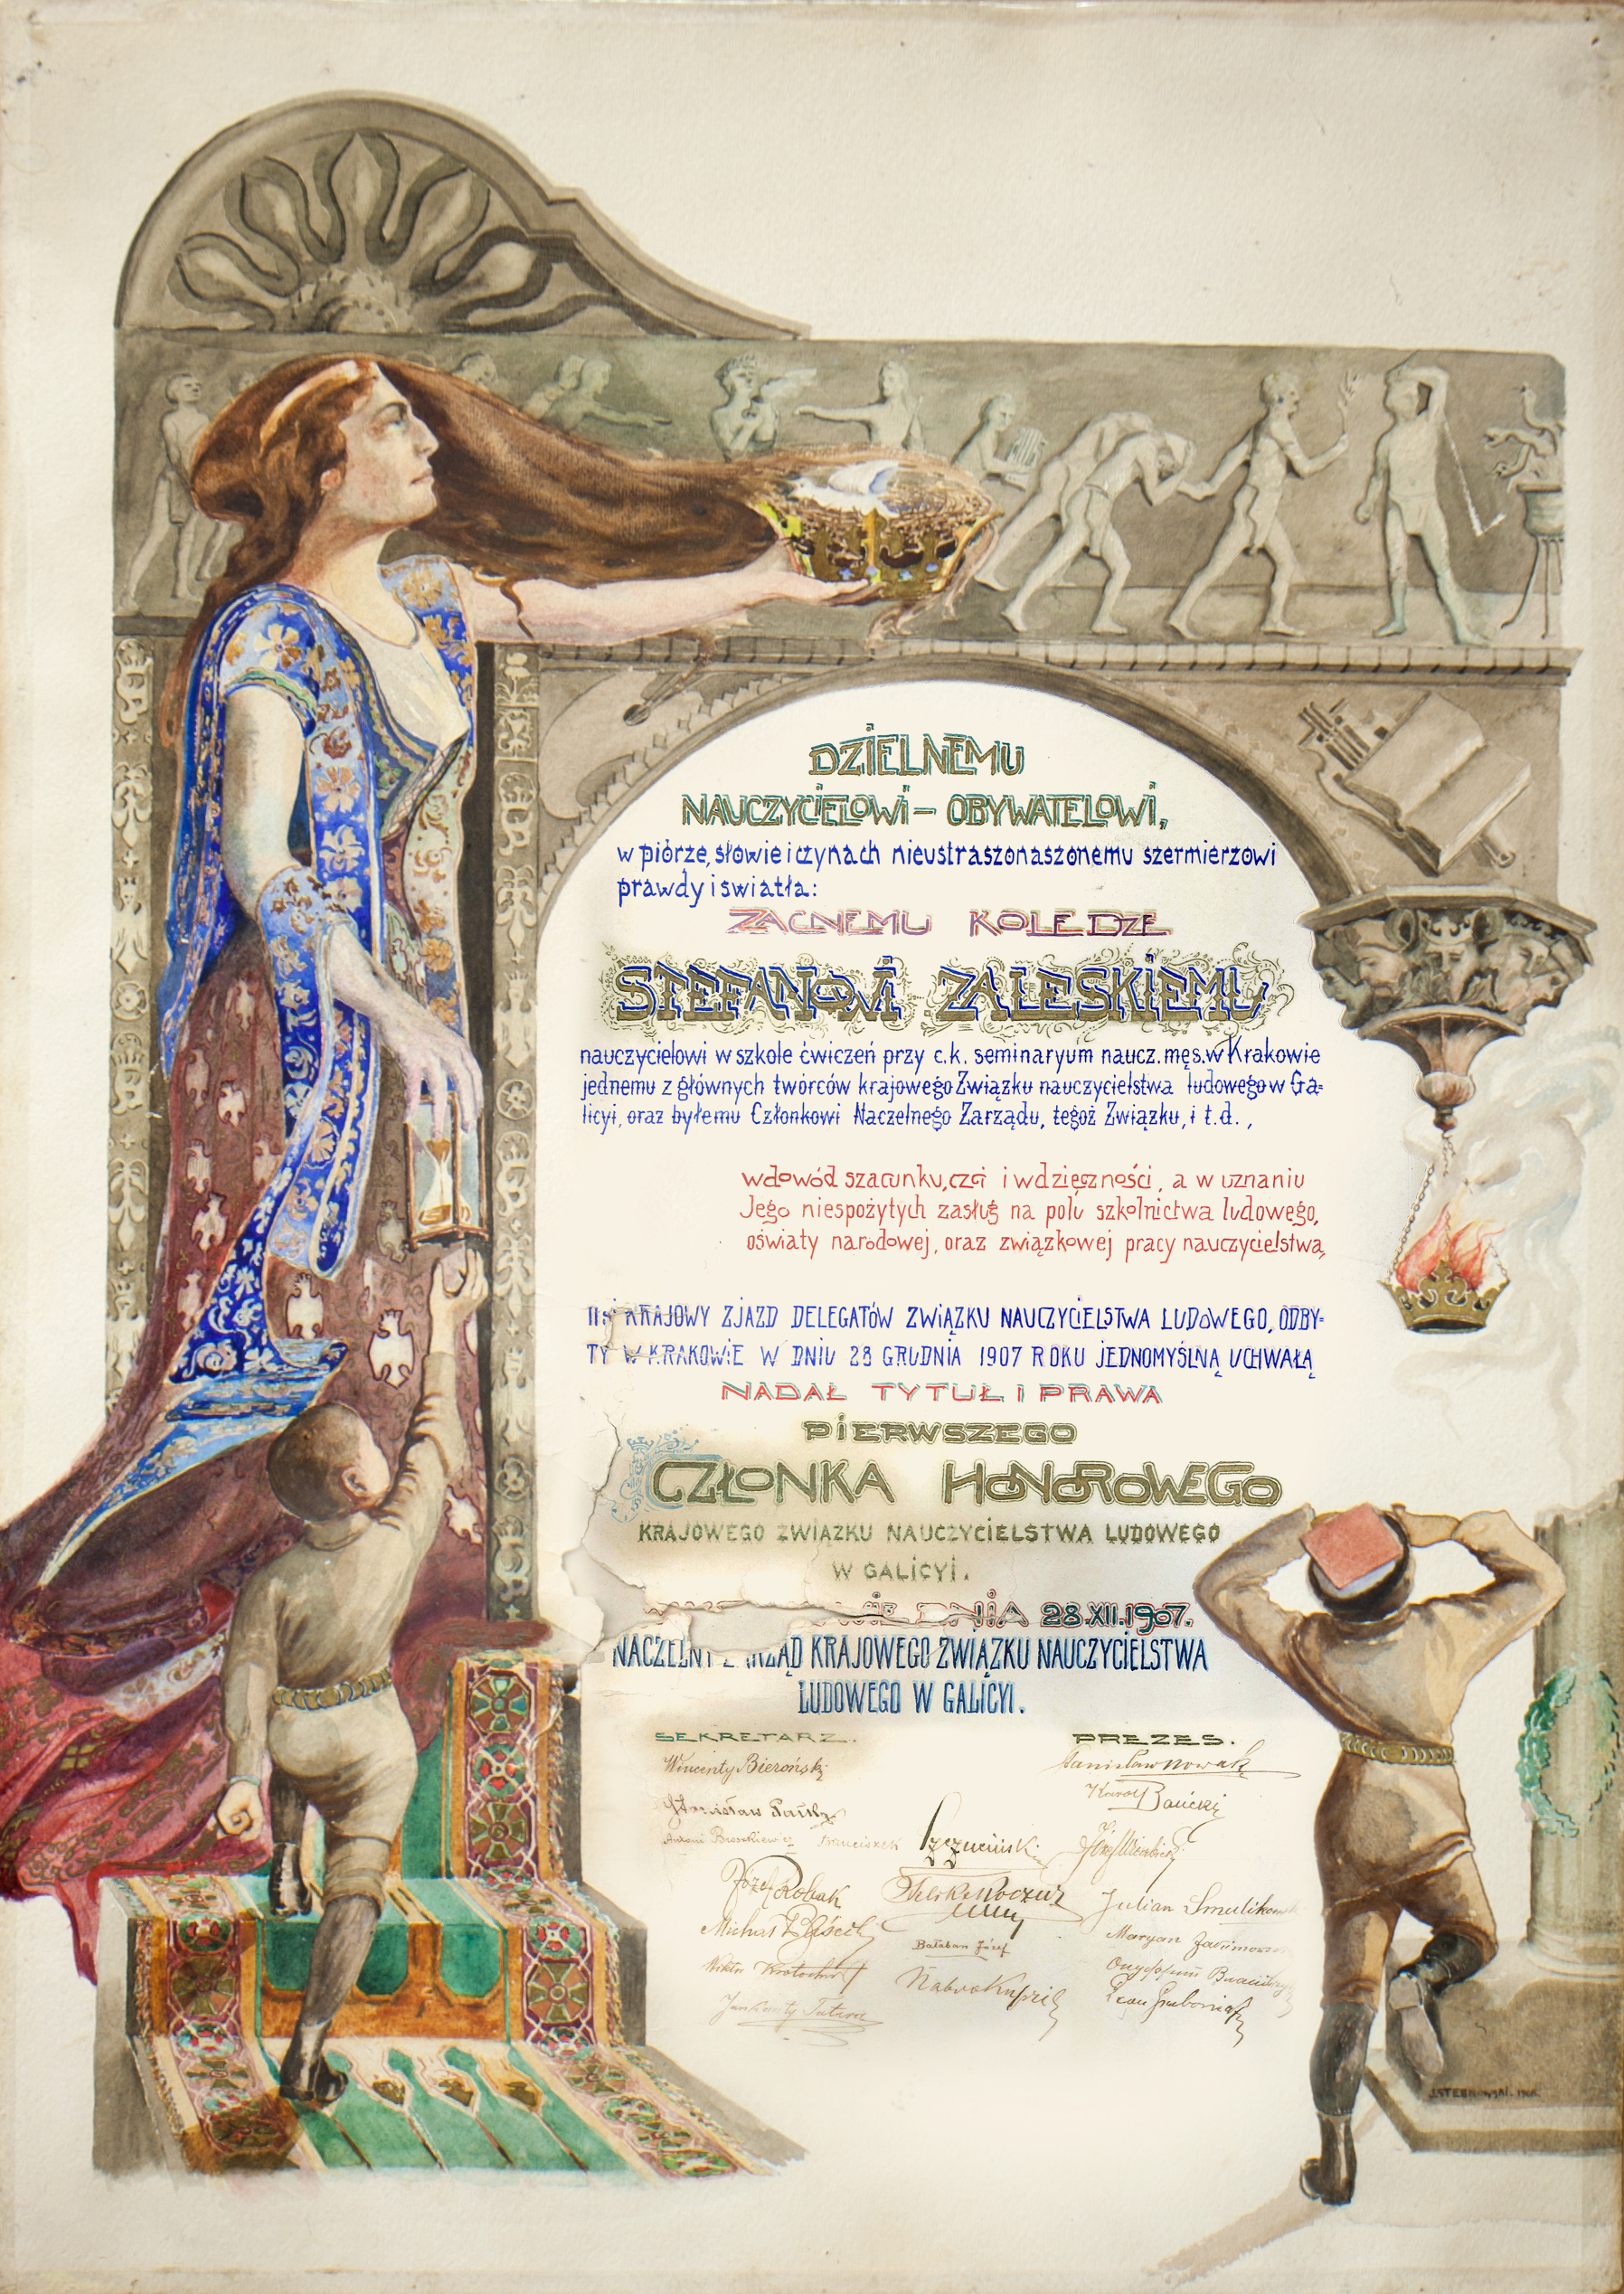 DZIELNEMU
NAUCZYCIELOWI – OBYWATELOWI,
w piórze, słowie i czynach nieustraszonaszonemu szermierzowi
prawdy i swiatła:
ZACNEMU KOLEDZE
STEFANOWI ZALESKIEMU
nauczycielowi w szkole ćwiczeń przy c.k. seminaryum naucz. męs. w Krakowie
jednemu z głównych twórców krajowego Związku nauczycielstwa ludowego w Ga=
licyi, oraz byłemu Członkowi Naczelnego Zarządu, tegoż Związku, i t.d.,
w dowód szacunku, czci i wdzięczności, a w uznaniu
Jego niespożytych zasług na polu szkolnictwa ludowego,
oświaty narodowej, oraz związkowej pracy nauczycielstwa,
KRAJOWY ZJAZD DELEGATÓW ZWIĄZKU NAUCZYCIELSTWA LUDOWEGO, ODBY=
TY W KRAKOWIE W DNIU 28 GRUDNIA 1907 ROKU JEDNOMYŚLNĄ UCHWAŁĄ
NADAŁ TYTUŁ I PRAWA
PIERWSZEGO
CZŁONKA HONOROWEGO
KRAJOWEGO ZWIĄZKU NAUCZYCIELSTWA LUDOWEGO
W GALICYI.
DNIA 28.XII.1907.
NACZELNY ZARZĄD KRAJOWEGO ZWIĄZKU NAUCZYCIELSTWA
LUDOWEGO W GALICYI.
SEKRETARZ. PREZES.
Wincenty Bieroński Stanisław Nowak
Karol Banicki
Stanisław
Antoni Franciszek
Józef Robak Feliks Koczur Julian Smulikowski
Michał Maryan
Bałaban Józef
Wiktor
Jan Kanty